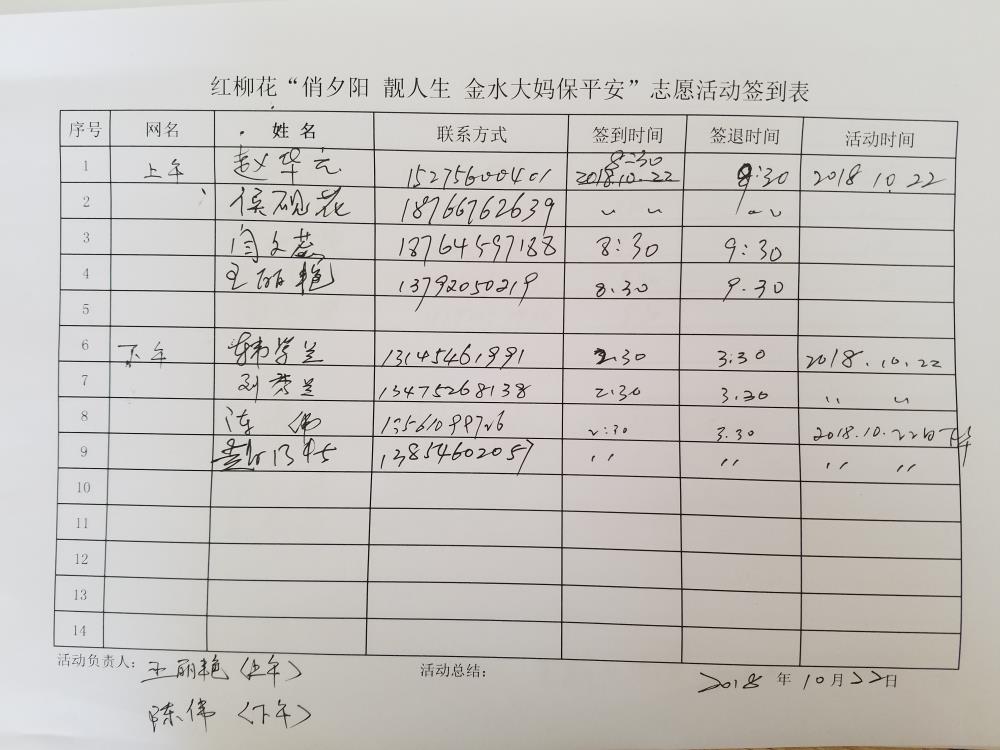 红柳花“俏夕阳 靓人生 金水大妈保平安”志愿活动签到表
序号 网名 姓名 联系方式 签到时间 签退时间 活动时间
1 上午 赵华云 15275600401 8:30 2018.10.22 9:30 2018 10.22
2 侯砚花 18766762639 〃 〃 〃 〃
3 闫文 18764597188 8:30 9:30
4 王丽艳 13792050219 8.30 9.30
5
6 下午 韩学兰 13145461991 2:30 3:30 2018.10.22
7 刘秀兰 13475268138 2:30 3.30 〃 〃
8 陈伟 13561099726 2:30 3.30 2018.10.22日下午
9 13854602057 〃 〃 〃 〃
10
11
12
13
14
活动负责人: 王丽艳(上午) 活动总结: 2018 年 10月22日
陈伟 (下午)